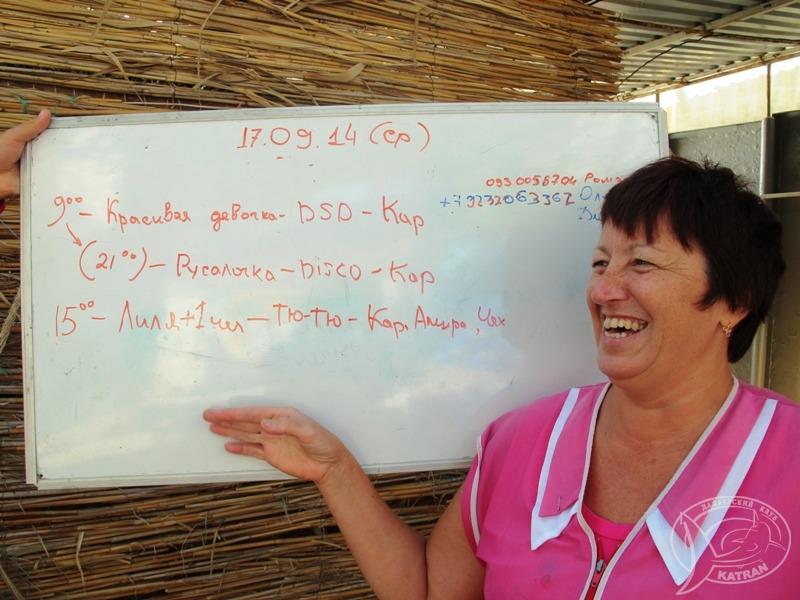 17.09.14 (ср)
0930056704 Рома
+79232063362 Ол
9⁰⁰ - Красивая девочка - DSD - Кар
(21⁰⁰) - Русалочка - DiSCO - Кар
15⁰⁰ - Лиля + 1 чел - Тю-тю - Кар,
ДАЙВЕРСКИЙ КЛУБ
KATRAN